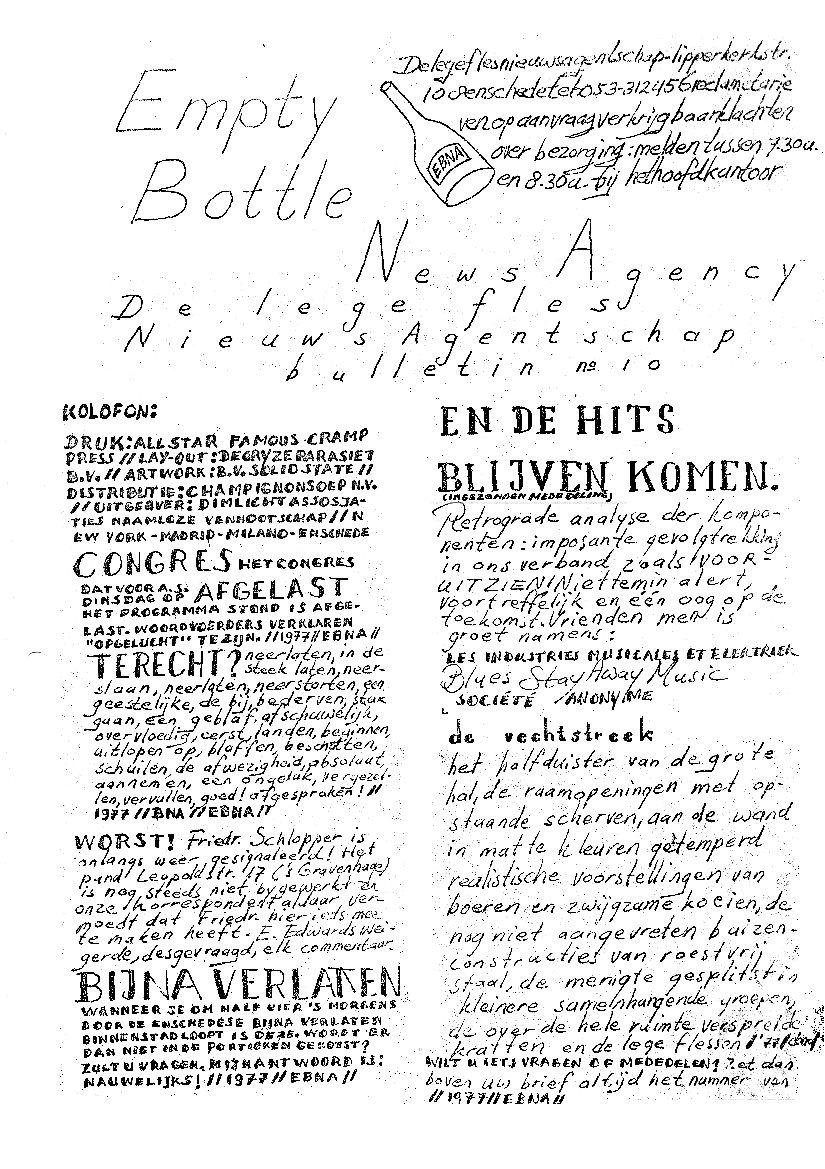 Empty
Bottle
De lege fles nieuwsagentschap-lipperkerkstr.
10 enschede tel 053-312456 reclametarie
ven op aanvraag verkrijgbaar klachten
over bezorging: melden tussen 7.30u.
en 8.30u. bij het hoofdkantoor
EBNA
News Agency
De lege fles
Nieuws Agentschap
bulletin no 10
KOLOFON:
DRUK: ALL STAR FAMOUS CRAMP
PRESS // LAY-OUT: DEGRYZE PARASIET
B.V. // ARTWORK: B.V. SOLID STATE //
DISTRIBUTIE: CHAMPIGNONSOEP N.V.
// UITGEVER: DIMLICHT ASSOSJA-
TIES NAAMLOZE VENNOOTSCHAP // N
EW YORK - MADRID - MILANO - ENSCHEDE
CONGRES HET CONGRES
DAT VOOR A.S.
DINSDAG OP AFGELAST
HET PROGRAMMA STOND IS AFGE-
LAST. WOORDVOERDERS VERKLAREN
"OPGELUCHT" TE ZIJN. // 1977 // EBNA //
TERECHT? neerlaten, in de
steek laten, neer-
slaan, neerlaten, neerstorten, een
geestelijke, de bij, bederven, stuk
gaan, een geblaf, afschuwelijk,
overvloedig, eerst, landen, beginnen,
uitlopen op, blaffen, beschutten,
schuilen, de afwezigheid, absoluut,
aannemen, een ongeluk, vergezel-
len, vervullen, goed! afgesproken! //
1977 // EBNA // EBNA //
WORST! Friedr. Schlopper is
onlangs weer gesignaleerd! Het
pand Leopoldstr. 17 ('s Gravenhage)
is nog steeds niet bygewerkt en
onze korrespondent aldaar, ver-
moedt dat Friedr. hier iets mee
te maken heeft. E. Edwards wei-
gerde, desgevraagd, elk commentaar
BIJNA VERLATEN
WANNEER JE OM HALF VIER 'S MORGENS
DOOR DE ENSCHEDESE BIJNA VERLATEN
BINNENSTAD LOOPT IS DEZE. WORDT ER
DAN NIET IN DE PORTIEKEN
ZULT U VRAGEN. MIJN ANTWOORD IS:
NAUWELIJKS! // 1977 // EBNA //
EN DE HITS
BLIJVEN KOMEN.
(INGEZONDEN MEDEDELING)
Retrograde analyse der kompo-
nenten: imposante gevolgtrekking
in ons verband zoals: VOOR-
UITZIEN! Niettemin alert,
voortreffelijk en één oog op de
toekomst. Vrienden men is
groet namens:
LES INDUSTRIES MUSICALES ET ELEKTRIEK
Blues Stay Away Music
SOCIÉTÉ ANONYME
de vechtstreek
het halfduister van de grote
hal, de raamopeningen met op-
staande scherven, aan de wand
in matte kleuren getemperd
realistische voorstellingen van
boeren en zwijgzame koeien, de
nog niet aangevreten buizen-
constructies van roestvrij
staal, de menigte gesplitst in
kleinere samenhangende groepen,
de over de hele ruimte verspreide
kratten en de lege flessen // '77 //
WILT U IETS VRAGEN OF MEDEDELEN? Zet dan
boven uw brief altijd het nummer van
// 1977 // EBNA //